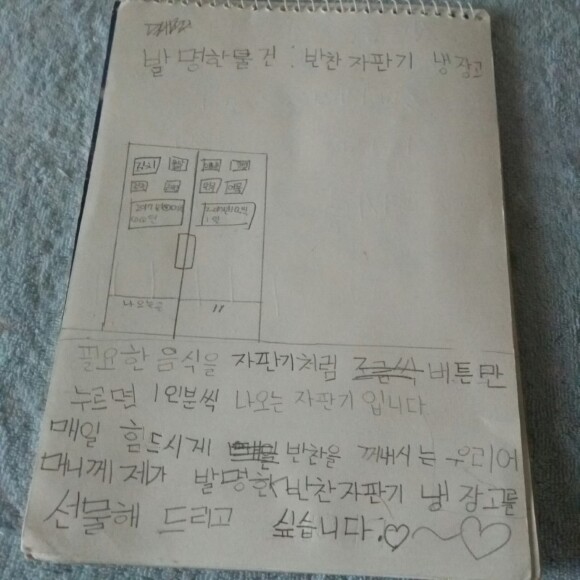 발명한물건 : 반찬자판기 냉장고
김치
나오는곳
"
필요한 음식을 자판기처럼 조금씩 버튼만
누르면 1인분씩 나오는 자판기입니다
매일 힘드시게 반찬을 꺼내시는 우리어
머니께 제가 발명한 반찬자판기 냉장고를
선물해 드리고 싶습니다.